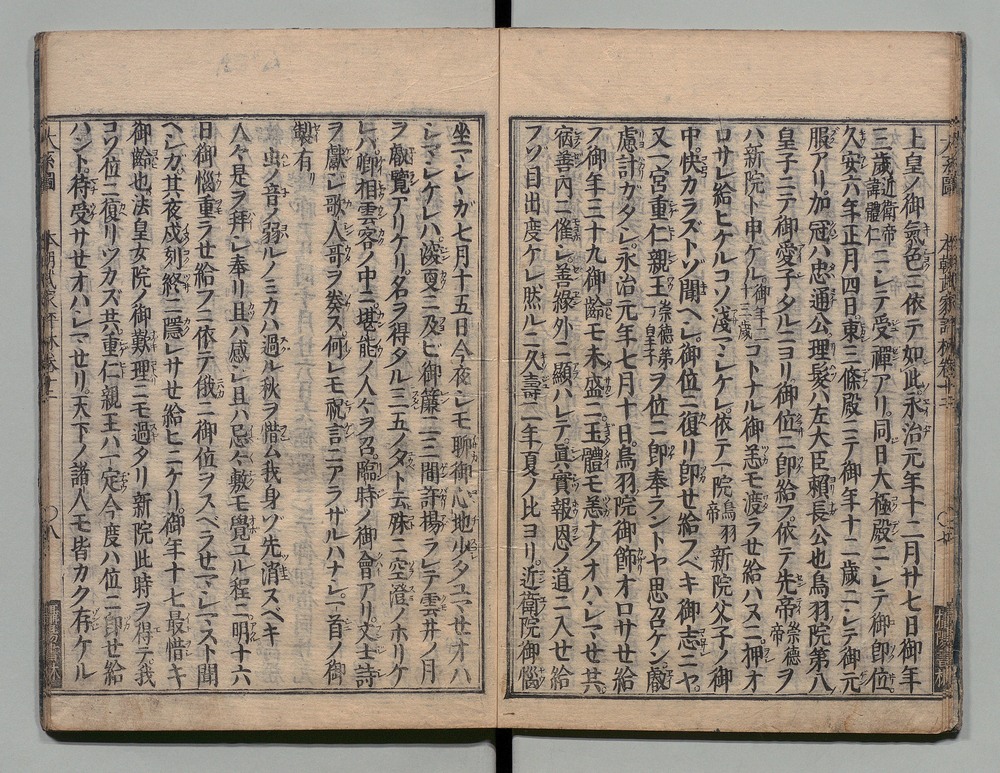 上皇ノ御氣色ニ依テ如此永治元年十二月廿七日御年
三歳近衛帝諱體仁ニシテ受禪アリ同日大極殿ニシテ御即位
久安六年正月四日東三條殿ニテ御年十二歳ニシテ御元
服アリ加冠ハ忠通公理髪ハ左大臣頼長公也鳥羽院第八
皇子ニテ御愛子タルニヨリ御位ニ即給フ依テ先帝崇徳帝ヲ
ハ新院ト申ケル御年二十三歳コトナル御恙モ渡ラせ給ハヌニ押オ
ロサレ給ヒケルコソ淺マシケレ依テ一院鳥羽帝新院父子ノ御
中快カラズトゾ聞ヘシ御位ニ復リ即せ給フベキ御志ニヤ
又一宮重仁親王崇徳第一皇子ヲ位ニ即奉ラントヤ思召ケン叡
慮計ガタシ永治元年七月十日鳥羽院御飾オロサせ給
フ御年三十九御齢モ未盛ニ玉體モ恙ナクオハシマせ共
宿善内ニ催シ善縁外ニ顯ハレテ眞實報恩ノ道ニ入せ給
フソ目出度ケレ然ルニ久壽二年夏ノ比ヨリ近衛院御惱
坐マシヽガ七月十五日今夜シモ聊御心地少タユマせオハ
シマシケレハ深更ニ及ビ御簾二三間許揚ラレテ雲井ノ月
ヲ叡覧アリケリ名ヲ得タル三五ノ夕ト云殊ニ空澄ノホリケ
レバ卿相雲客ノ中ニ堪能ノ人々ヲ召臨時ノ御會アリ文士詩
ヲ獻シ歌人哥ヲ奏ス何レモ祝言ニアラザルハナシ一首ノ御
製有リ
虫ノ音ノ弱ルノミカハ過ル秋ヲ惜ム我身ソ先消スベキ
人々是ヲ拜シ奉リ且ハ感シ且ハ忌々敷モ覺ユル程ニ明十六
日御惱重ラせ給フニ依テ餓ニ御位ヲスベラせマシマスト聞
ヘシガ其夜戍刻終ニ隱レサせ給ヒニケリ御年十七最惜キ
御齢也法皇女院ノ御歎理ニモ過タリ新院此時ヲ得テ我
コソ位ニ復リツカズ共重仁親王ハ一定今度ハ位ニ即せ給
ハント待受サせオハシマせリ天下ノ諸人モ皆カク存ケル